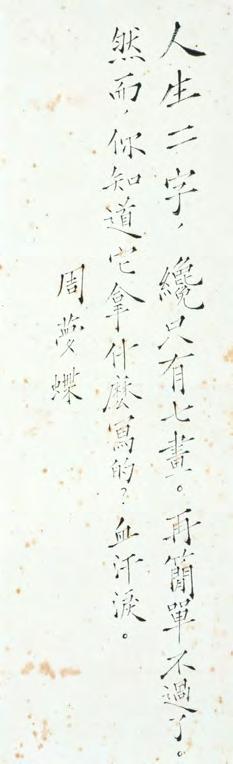 人生二字，纔只有七畫。再簡單不過了。
然而，你知道它拿什麼寫的？血汗淚。
周夢蝶